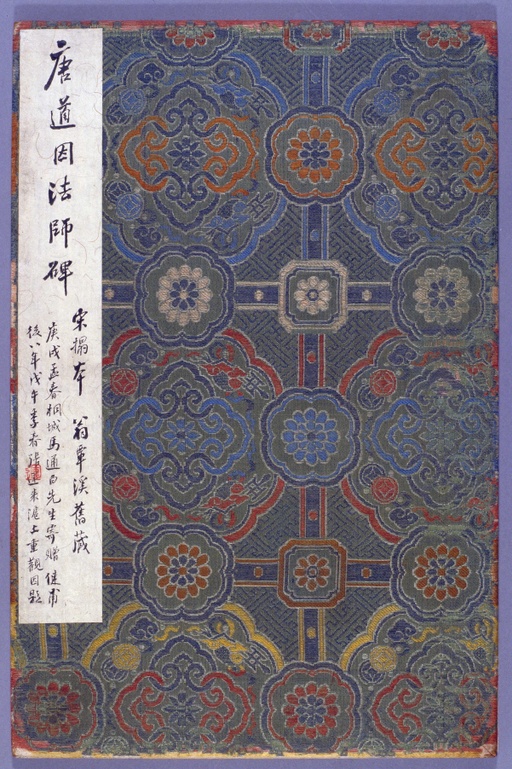 唐道因法師碑
宋搨本 翁覃溪舊藏
庚戌孟春桐城馬通白先生寄贈 甫
後八年戊午季春 来滬上重觀因題